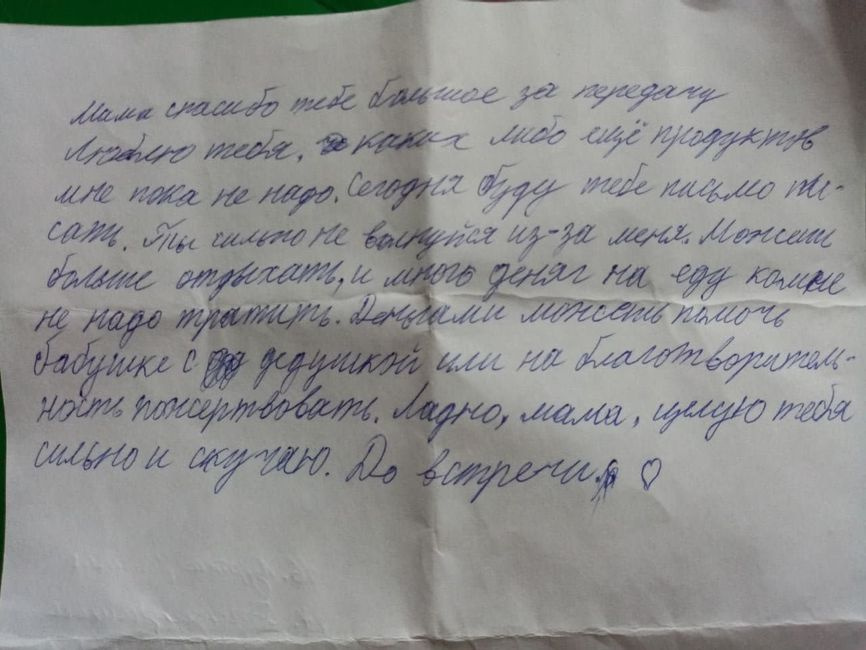 Мама спасибо тебе большое за передачу
Люблю тебя, каких либо ещё продуктов
мне пока не надо. Сегодня буду тебе письмо пи-
сать. Ты сильно не волнуйся из-за меня. Можешь
больше отдыхать, и много деняг на еду
не надо тратить. Деньгами можешь помочь
бабушке с дедушкой или на благотворитель-
ность пожертвовать. Ладно, мама, целую тебя
сильно и скучаю. До встречи ♡